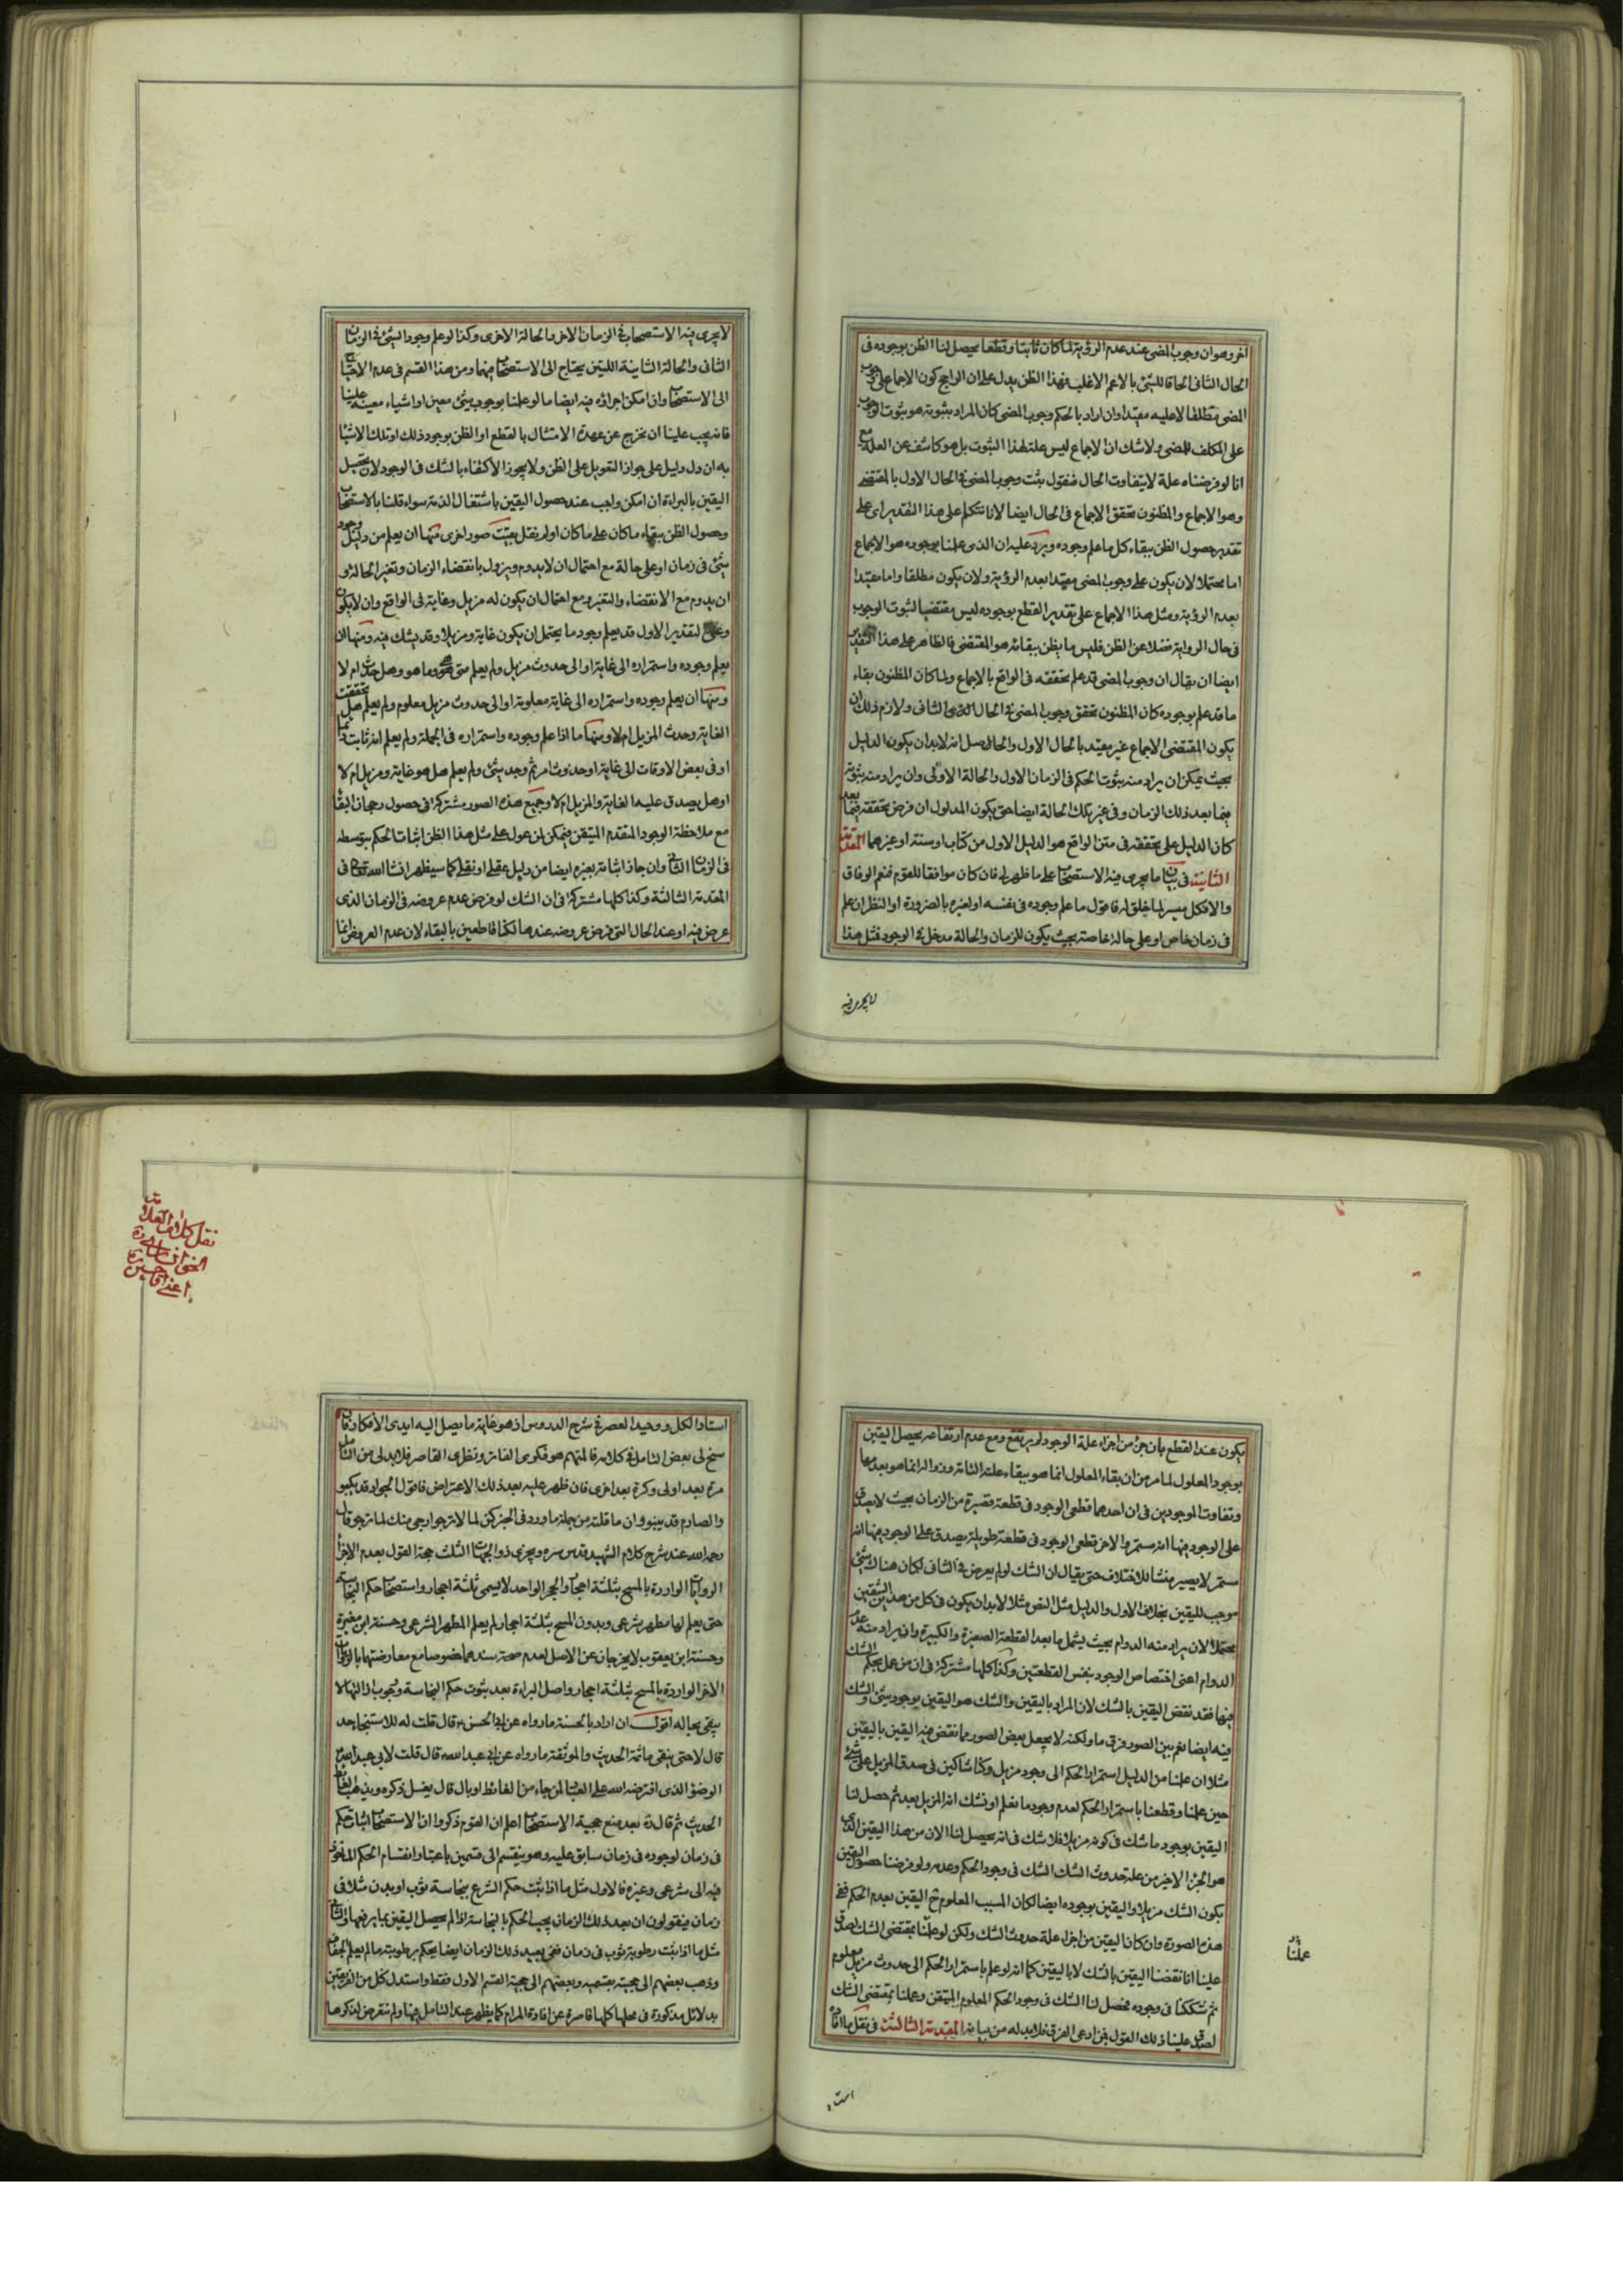 اخر وهو ان وجوب المضى عند عدم الرؤية لما كان ثابتا وقطعا يحصل لنا الظن بوجوده فى
الحال الثانى الحاقا للشئ بالاعم الاغلب فهذا الظن يدل على ان الراجح كون الاجماع على وجوب
المضى مطلقا لا عليه مقيدا وان اراد بالحكم وجوب المضى كان المراد بثبوته هو ثبوت الوجوب
على المكلف للمضى ولا شك ان الاجماع ليس علة لهذا الثبوت بل هو كاشف عن العلة مع
انا لو فرضناه علة لا يتفاوت الحال فنقول ثبت وجوب المضى فى الحال الاول بالمقتضى
وهو الاجماع والمظنون تحقق الاجماع فى الحال ايضا لانا نتكلم على هذا التقدير اى على
تقدير حصول الظن ببقاء كل ما علم وجوده ويرد عليه ان الذى علمنا بوجوده هو الاجماع
اما محتملا لان يكون على وجوب المضى مقيدا بعدم الرؤية ولان يكون مطلقا واما مقيدا
بعدم الرؤية ومثل هذا الاجماع على تقدير القطع بوجوده ليس مقتضيا لثبوت الوجوب
فى حال الرواية فضلا عن الظن فليس ما يظن ببقائه هو المقتضى فالظاهر على هذا التقدير
ايضا ان يقال ان وجوب المضى قد علم تحققه فى الواقع بالاجماع ولما كان المظنون بقاء
ما قد علم بوجوده كان المظنون تحقق وجوب المضى فى الحال الثانى ولازم ذلك ان
يكون المقتضى الاجماع غير مقيد بالحال الاول والحاصل انه لابد ان يكون الدليل
بحيث يمكن ان يراد منه ثبوت الحكم فى الزمان الاول والحالة الاولى وان يراد منه ثبوته
فيما بعد ذلك الزمان وفى غير تلك الحالة ايضا حتى يكون المدلول ان فرض تحققه فيما بعد
كان الدليل على تحققه فى متن الواقع هو الدليل الاول من كتاب او سنة او غيرهما المقدمة
الثانية فى بيان ما يجرى فيه الاستصحاب على ما ظهر لى فان كان موافقا للقوم فنعم الوفاق
والا فكل ميسر لما خلق له فاقول ما علم وجوده فى نفسه او لغيره بالضرورة او النظر ان علم
فى زمان خاص او على حالة خاصة بحيث يكون للزمان والحالة مدخل فى الوجود فمثل هذا
لا يجرى فيه
لا يجرى فيه الاستصحاب فى الزمان الاخر والحالة الاخرى وكذا لو علم وجود الشئ فى الزمان
الثانى والحالة الثانية اللتين يحتاج الى الاستصحاب فيهما ومن هذا القسم فى عدم الاحتياج
الى الاستصحاب وان امكن اجراؤه فيه ايضا ما لو علمنا بوجوب شئ معين او اشياء معينة علينا
فانه يجب علينا ان نخرج عن عهدة الامتثال بالقطع او الظن بوجود ذلك او تلك الاشياء
به ان دل دليل على جواز التعويل على الظن ولا يجوز الاكتفاء بالشك فى الوجود لان تحصيل
اليقين بالبراءة ان امكن واجب عند حصول اليقين باشتغال الذمة سواء قلنا بالاستصحاب
وحصول الظن ببقاء ما كان على ما كان او لم نقل بقيت صور اخرى منها ان يعلم من دليل وجود
شئ فى زمان او على حالة مع احتمال ان لا يدوم ويزول بانقضاء الزمان وتغير الحالة و
ان يدوم مع الانقضاء والتغير ومع احتمال ان يكون له مزيل وغاية فى الواقع وان لا يكون
وعلى التقدير الاول قد يعلم وجود ما يحتمل ان يكون غاية ومزيلا وقد يشك فيه ومنها ان
يعلم وجوده واستمراره الى غاية او الى حدوث مزيل ولم يعلم متى هو وما هو وهل حدث ام لا
ومنها ان يعلم وجوده واستمراره الى غاية معلومة او الى حدوث مزيل معلوم ولم يعلم هل تحققت
الغاية وحدث المزيل ام لا ومنها ما اذا علم وجوده واستمراره فى الجملة ولم يعلم انه ثابت دائما
او فى بعض الاوقات الى غاية او حدوث امر ثم وجد شئ ولم يعلم هل هو غاية ومزيل ام لا
او هل يصدق عليه الغاية والمزيل ام لا وجميع هذه الصور مشتركة فى حصول رجحان البقاء
مع ملاحظة الوجود المتقدم المتيقن فيمكن لمن عول على مثل هذا الظن اثبات الحكم بتوسطه
فى الزمان الثانى وان جاز اثباته بغيره ايضا من دليل عقلى او نقلى كما سيظهر انشا الله تعالى فى
المقدمة الثالثة وكذا كلها مشتركة فى ان الشك لو فرض عدم عروضه فى الزمان الذى
عرض فيه او عند الحال التى فرض عروضه عندها لكنا قاطعين بالبقاء لان عدم العروض انما
يكون عند القطع بان جزء من اجزاء علة الوجود لم يرتفع ومع عدم ارتفاعه يحصل اليقين
بوجود المعلول لما مر من ان بقاء المعلول انما هو ببقاء علته التامة وزواله انما هو بعدمها
وتفاوت الموجودين فى ان احدهما قطعى الوجود فى قطعة قصيرة من الزمان بحيث لا يصدق
على الوجود فيها انه مستمر والاخر قطعى الوجود فى قطعة طويلة يصدق على الوجود فيها انه
مستمر لا يصير منشا للاختلاف حتى يقال ان الشك لو لم يعرض فى الثانى لكان هناك شئ
موجب لليقين بخلاف الاول والدليل مثل النص مثلا لابد ان يكون فى كل من هذين الشقين
محتملا لان يراد منه الدوام بحيث يشمل ما بعد القطعة الصغيرة والكبيرة وان يراد منه عدم
الدوام اعنى اختصاص الوجود بنفس القطعتين وكذا كلها مشتركة فى ان من عمل بحكم الشك
فيها فقد نقض اليقين بالشك لان المراد باليقين والشك هو اليقين بوجود شئ والشك
فيه ايضا نعم بين الصور فرق ما ولكنه لا يجعل بعض الصور مما نقض فيه اليقين باليقين
مثلا ان علمنا من الدليل استمرار الحكم الى وجود مزيل وكنا شاكين فى صدق المزيل على شئ
حين علمنا وقطعنا باستمرار الحكم لعدم وجود ما نعلم او نشك انه المزيل بعد ثم حصل لنا
اليقين بوجود ما شك فى كونه مزيلا فلا شك فى انه يحصل لنا الان من هذا اليقين الذى
هو الجزء الاخير من علة حدوث الشك الشك فى وجود الحكم وعدمه ولو فرضنا حصول اليقين
بكون الشك مزيلا واليقين بوجوده ايضا لكان المسبب المعلوم ح اليقين بعدم الحكم ففى
هذه الصورة وان كان اليقين من اجزاء علة حدوث الشك ولكن لو عملنا بمقتضى الشك لصدق
علينا انا نقضنا اليقين بالشك لا باليقين كما انه لو علم باستمرار الحكم الى حدوث مزيل معلوم
ثم شككنا فى وجوده فحصل لنا الشك فى وجود الحكم المعلوم المتيقن وعملنا بمقتضى الشك
لصدق علينا ذلك القول فمن ادعى الفرق فلا بد له من بيانه المقدمة الثالثة فى نقل ما افاد
علنا
استاد
استاد الكل ووحيد العصر فى شرح الدروس اذ هو غاية ما يصل اليه ايدى الافكار وان
سنح لى بعض التامل فى كلامه فالمتهم هو فكرى الفاتر ونظرى القاصر فلا بد لى من التامل
مرة بعد اولى وكرة بعد اخرى فان ظهر عليه بعد ذلك الاعتراض فاقول الجواد قد يكبو
والصارم قد ينبو وان ما قلته من جملة ما ورد فى الخبر كن لما لا ترجو ارجى منك لما ترجو قال
رحمه الله عند شرح كلام الشهيد قدس سره ويجزى ذو الجهات الثلث حجة القول بعدم الاجزا
الروايات الواردة بالمسح بثلثة احجار والحجر الواحد لا يسمى ثلثة احجار واستصحاب حكم النجاسة
حتى يعلم لها مطهر شرعى وبدون المسح بثلثة احجار لم يعلم المطهر الشرعى وحسنة ابن مغيرة
وحسنة ابن يعقوب لا يخرجان عن الاصل لعدم صحة سندهما خصوصا مع معارضتهما بالروايات
الاخر الواردة بالمسح بثلثة احجار واصل البراءة بعد ثبوت حكم النجاسة ووجوب ازالتها لا
يبقى بحاله اقول ان اراد بالحسنة ما رواه عن ابى الحسن ع قال قلت له للاستنجاء حد
قال لا حتى ينقى ما ثمة الحديث والموثقة ما رواه عن ابى عبد الله قال قلت لابى عبد الله
الوضوء الذى افترضه الله على العباد لمن جاء من الغائط او بال قال يغسل ذكره ويذهب الغائط
الحديث ثم قال ره بعد منع حجية الاستصحاب اعلم ان القوم ذكروا ان الاستصحاب اثبات حكم
فى زمان لوجوده فى زمان سابق عليه وهو ينقسم الى قسمين باعتبار انقسام الحكم الماخوذ
فيه الى شرعى وغيره فالاول مثل ما اذا ثبت حكم الشرع بنجاسة ثوب او بدن مثلا فى
زمان فيقولون ان بعد ذلك الزمان يجب الحكم بالنجاسة اذا لم يحصل اليقين بما يرفعها والثانى
مثل ما اذا ثبت رطوبة ثوب فى زمان ففى بعيد ذلك الزمان ايضا يحكم برطوبته ما لم يعلم الجفاف
وذهب بعضهم الى حجيته بقسميه وبعضهم الى حجية القسم الاول فقط واستدل كل من الفريقين
بدلائل مذكورة فى محلها كلها قاصرة عن افادة المرام كما يظهر عند التامل فيها ولم نتعرض لذكرها
نقل كلام
اعنى اقا حسين